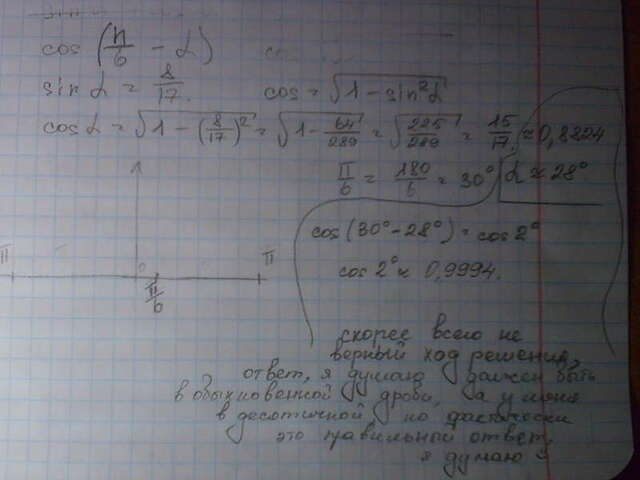 cos (π/6 - α) co
sin α = 8/17. cos = √1 - sin²α
cos α = √1 - (8/17)² = √1 - 64/289 = √225/289 = 15/17 ≈ 0,8824
π/6 = 180/6 = 30° α ≈ 28°
cos (30° - 28°) = cos 2°
cos 2° ≈ 0,9994.
π 0 π/6 π
скорее всего не
верный ход решения,
ответ, я думаю должен быть
в обыкновенной дроби, а у меня
в десятичной, но фактически
это правильный ответ,
я думаю